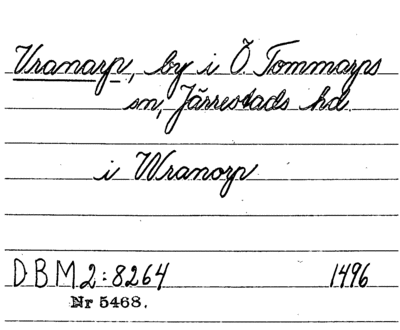 Vranarp, by i Ö. Tommarps
sn, Järrestads hd.
i Wranorp
DBM 2:8264 1496
Nr 5468.